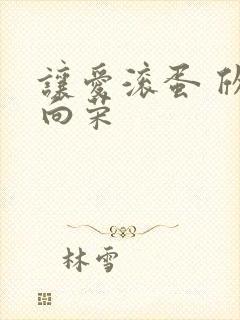 讓愛滾蛋 欣
向荣
林雪